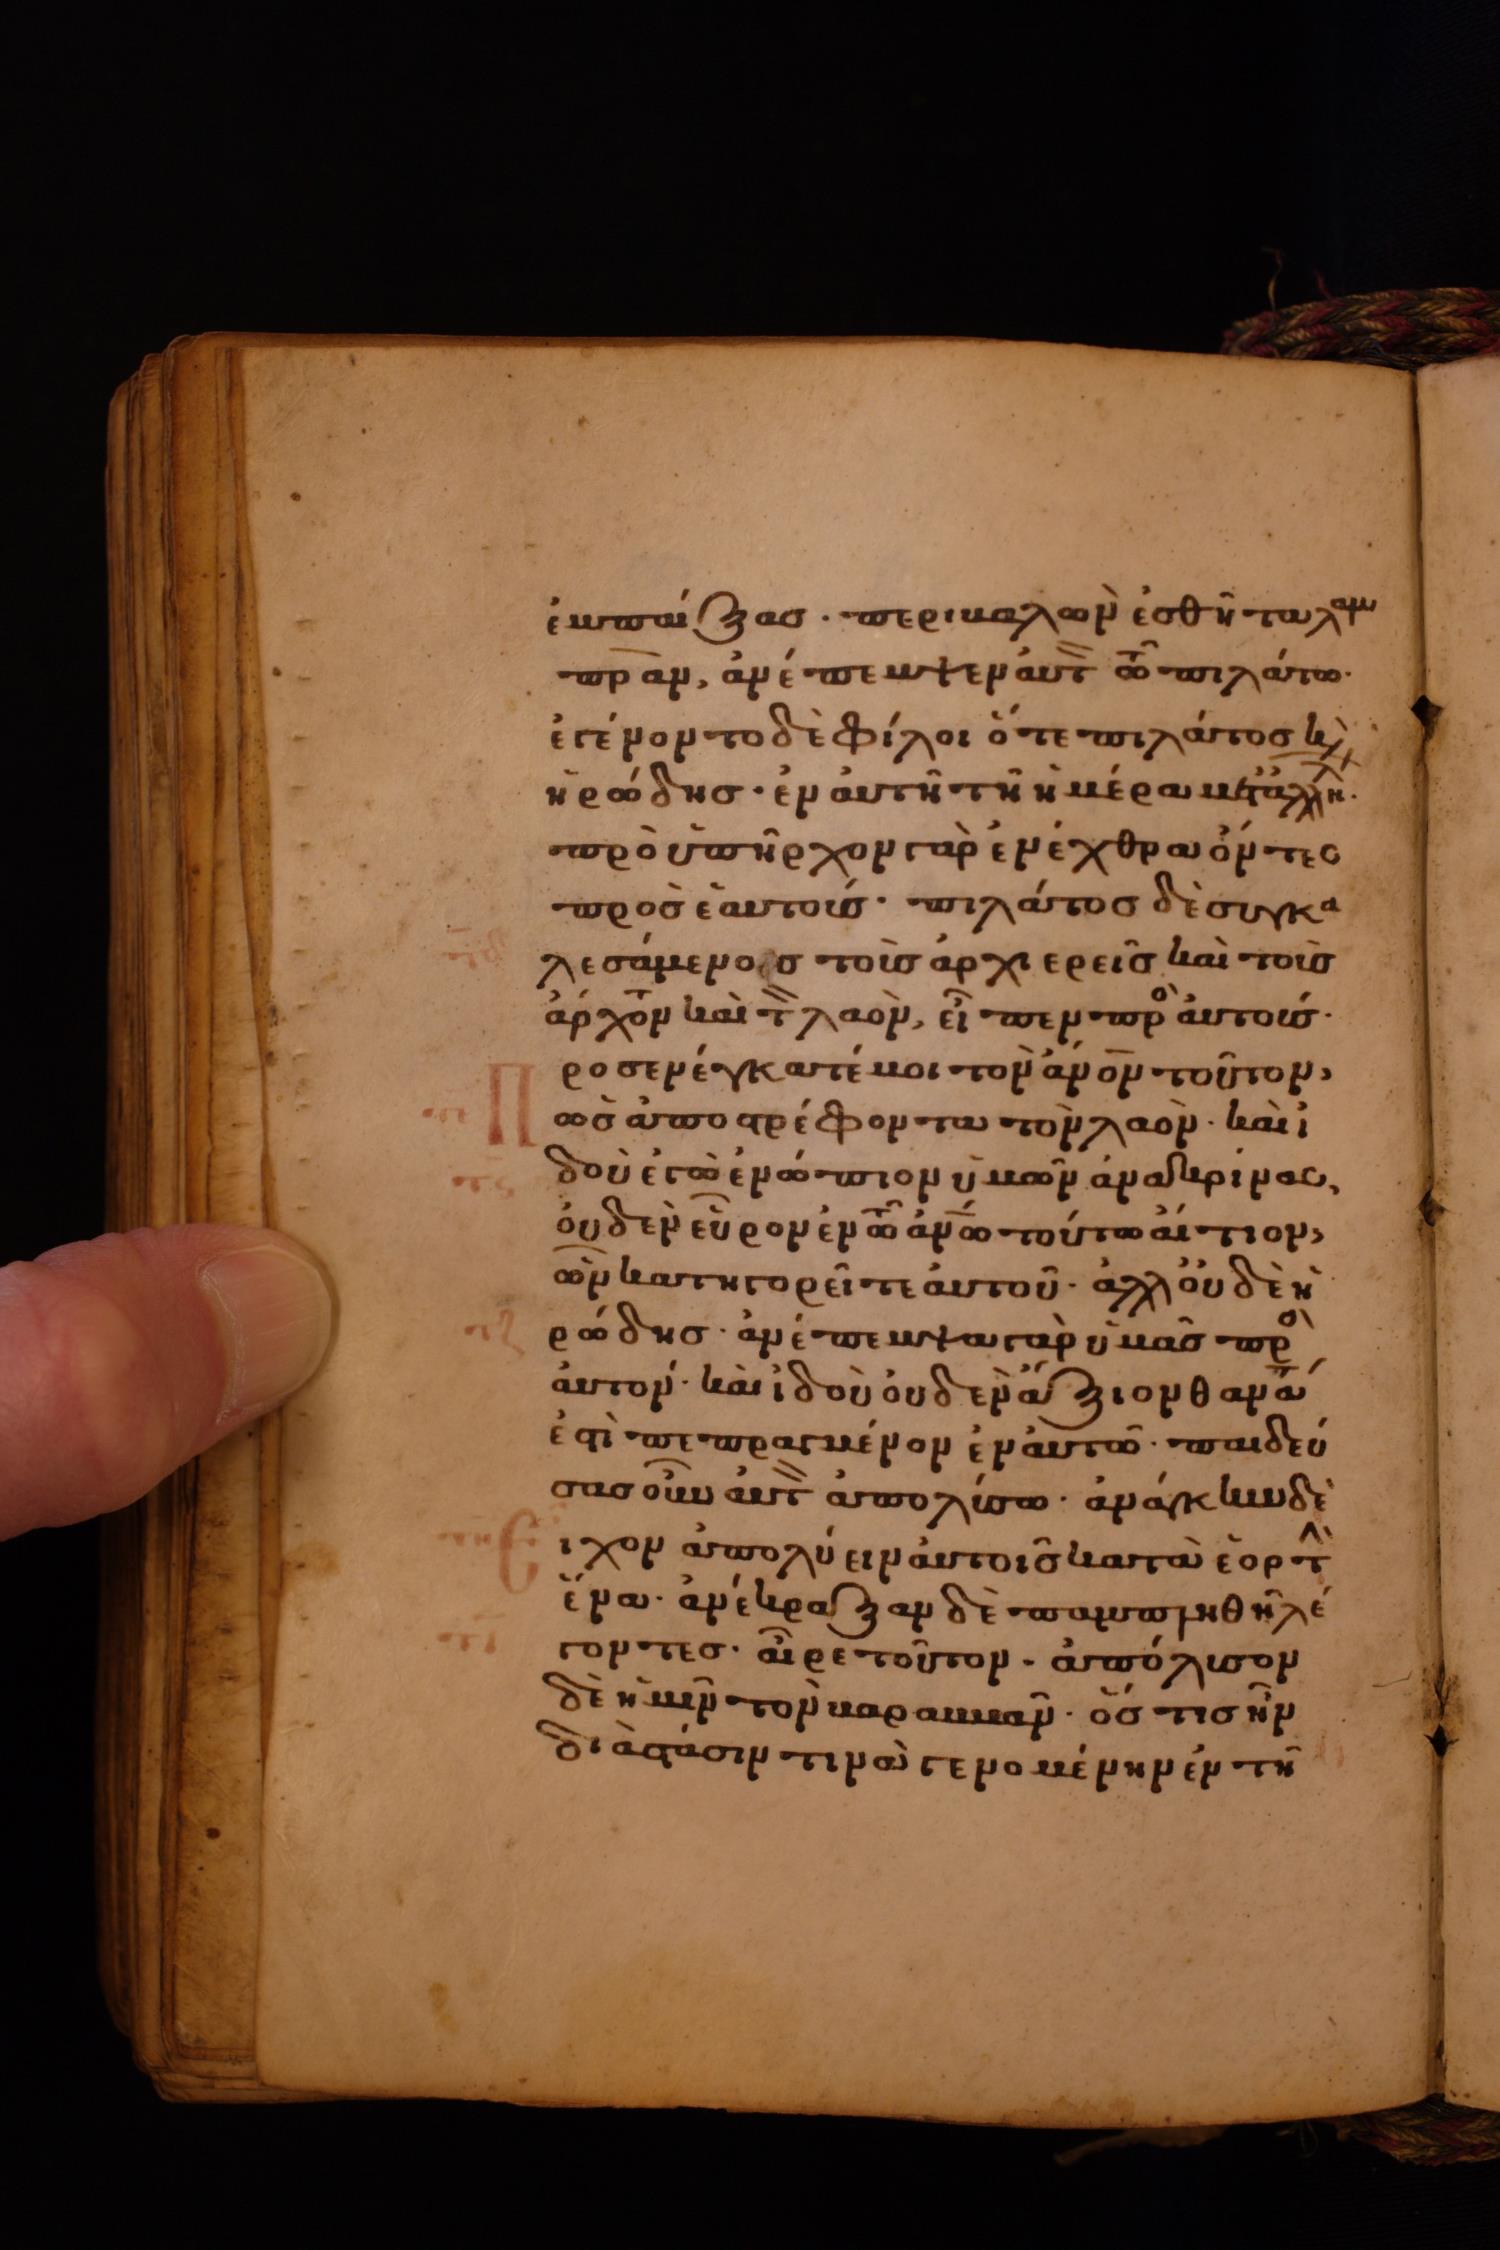 ἐμπαίξας · περιβαλὼν ἐσθῆτα λαμ
πρὰν, ἀνέπεμψεν αὐτ τῶ πιλάτω·
ἐγένοντο δὲ φίλοι ὅτε πιλάτος κὶ
ἡρώδης · ἐν αὐτῆ τῆ ἡμέρα μετ ἀλλή·
προὑπῆρχον γὰρ ἐν ἔχθρα ὄντες
πρὸς ἑαυτούς · πιλάτος δὲ συγκα
λεσάμενος τοὺς ἀρχιερεῖς καὶ τοὺς
ἄρχον καὶ τ λαὸν, εἶπεν πρὸ αὐτούς ·
Προσενέγκατέ μοι τὸν ἄνον τοῦτον,
ὡς ἀποστρέφοντα τὸν λαὸν · καὶ ἰ
δοὺ ἐγὼ ἐνώπιον ὑμῶν ἀνακρίνας,
οὐδὲν εὗρον ἐν τῶ ἀνω τούτω αἴτιον,
ὧν κατηγορεῖτε αὐτοῦ · ἀλλ οὐδὲ ἡ
ρώδης · ἀνέπεμψα γὰρ ὑμᾶς πρὸ
αὐτόν · καὶ ἰδοὺ οὐδὲν ἄξιον θανά
ἐστὶ πεπραγμένον ἐν αὐτῶ · παιδεύ
σας οὖν αὐτ ἀπολύσω · ἀνάγκην δὲ
Εἶχον ἀπολύειν αὐτοῖς κατὰ ἑορτ
ἕνα · ἀνέκραξαν δὲ παμπληθῆ λέ
γοντες · αἶρε τοῦτον · ἀπόλυσον
δὲ ἡμῖν τὸν βαραμμᾶν · ὅς τις ἦν
διὰ στάσιν τινὰ γενομένην ἐν τῆ